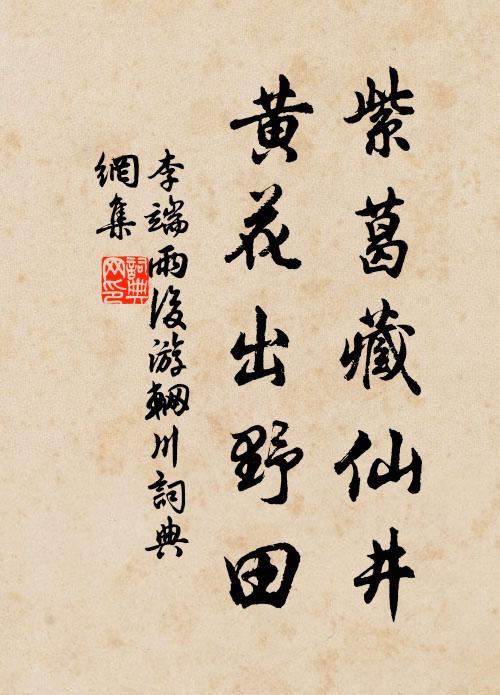 紫葛藏仙井
黄花出野田
李端雨後游輞川詞典
網集
詞典
网印